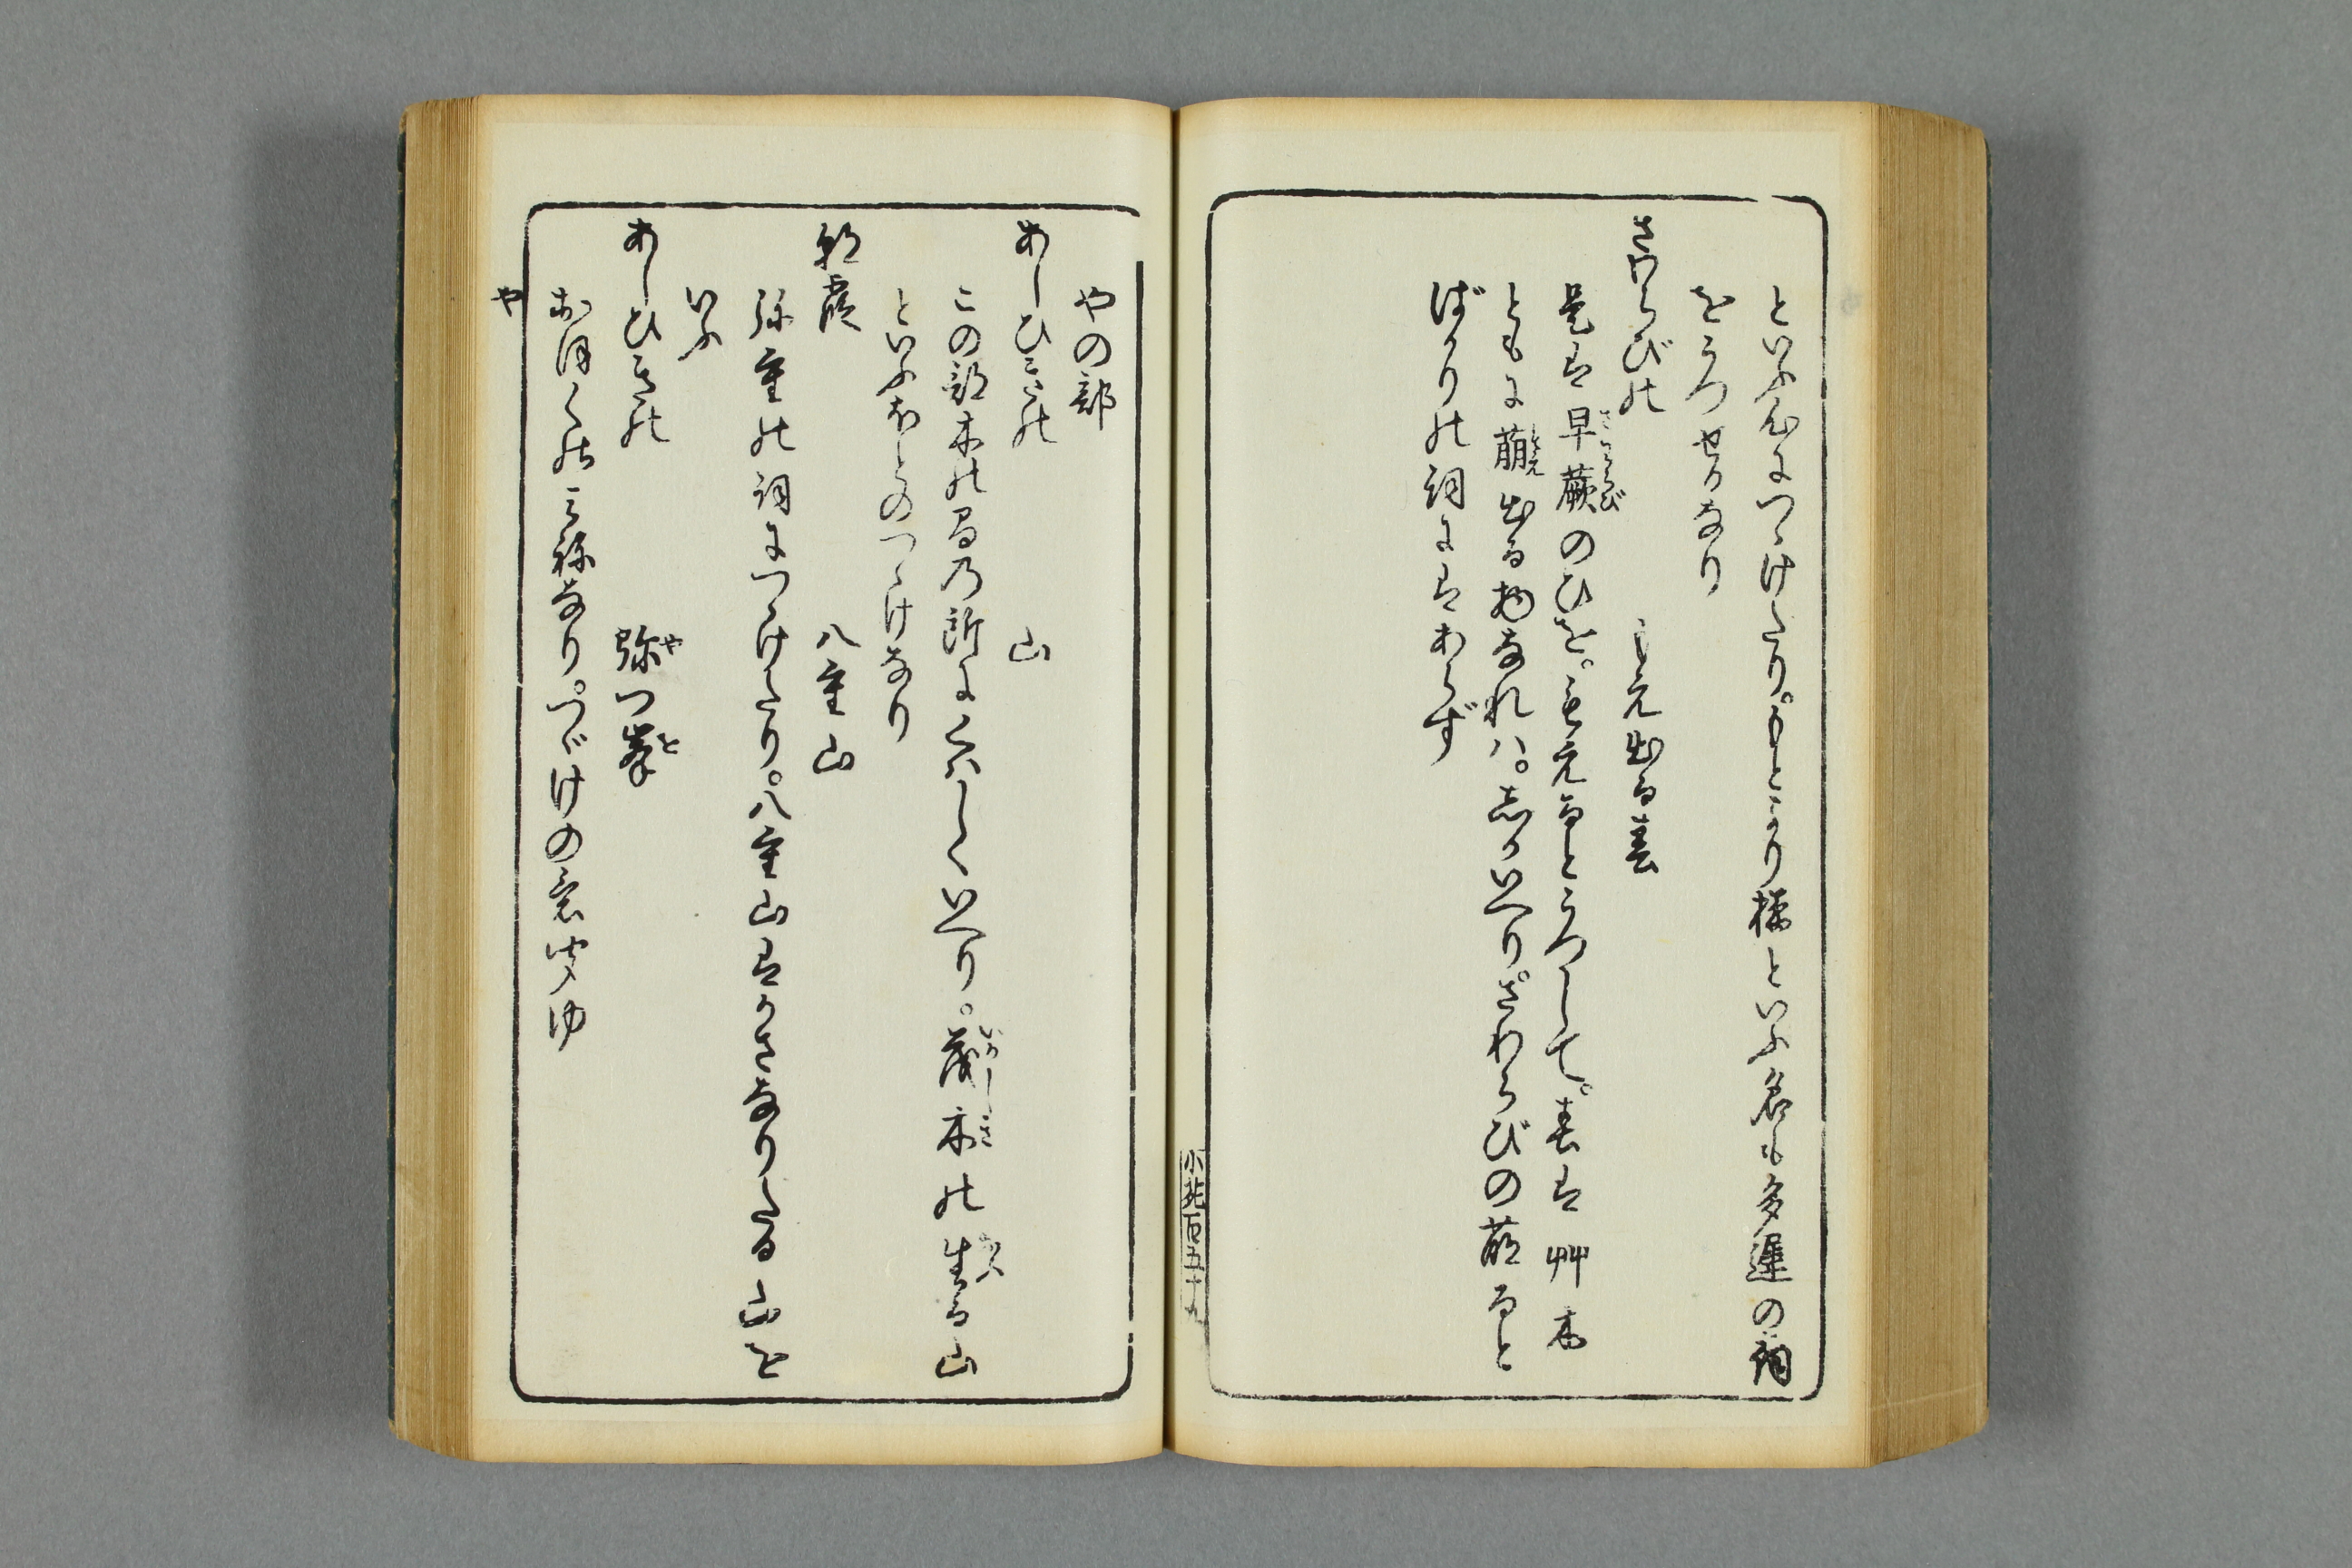 といふ心につゝけたり。もとより様といふ名も多遅の詞
をうつせるなり
さわらびの　もえ出る春
是は早蕨のひを。もえるとうつして。春は艸木
ともに萌出る物なれハ。しかいへり。さわらびの萌ると
ばかりの詞にはあらず
やの部
あしひきの　山
この部木の間乃所にくハしくいへり。茂木の生る山
といふほとのつゝけなり
朝霞　八重山
弥重の詞につゝけたり。八重山はかさなりたる山を
いふ
あしひきの　弥つ峯
おほくのみねなり。つゞけの意聞ゆ
や
小冠百五十九